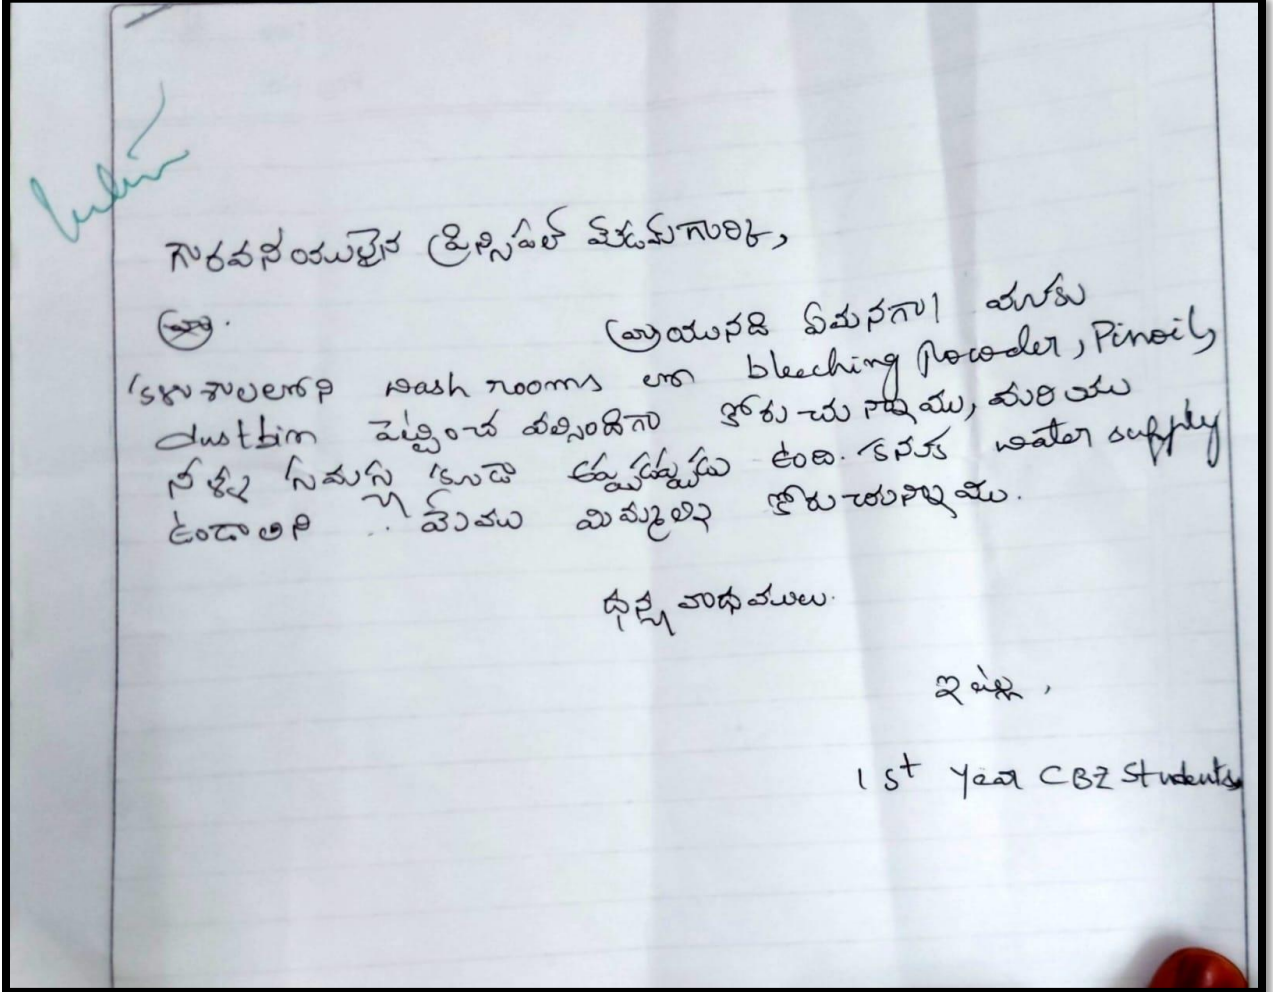 గౌరవనీయులైన ప్రిన్సిపల్ మేడమ్ గారికి,
వ్రాయునది ఏమనగా। మాకు
కళాశాలలోని wash rooms లో bleeching Powder, Pinoil,
dustbin పెట్టించ వలసిందిగా కోరుచున్నాము, మరియు
నీళ్ళ సమస్య కూడా అప్పుడప్పుడు ఉంది. కనుక water supply
ఉండాలని మేము మిమ్మల్ని కోరుచున్నాము.
ధన్యవాధములు.
ఇట్లు,
1st Year CBZ Students